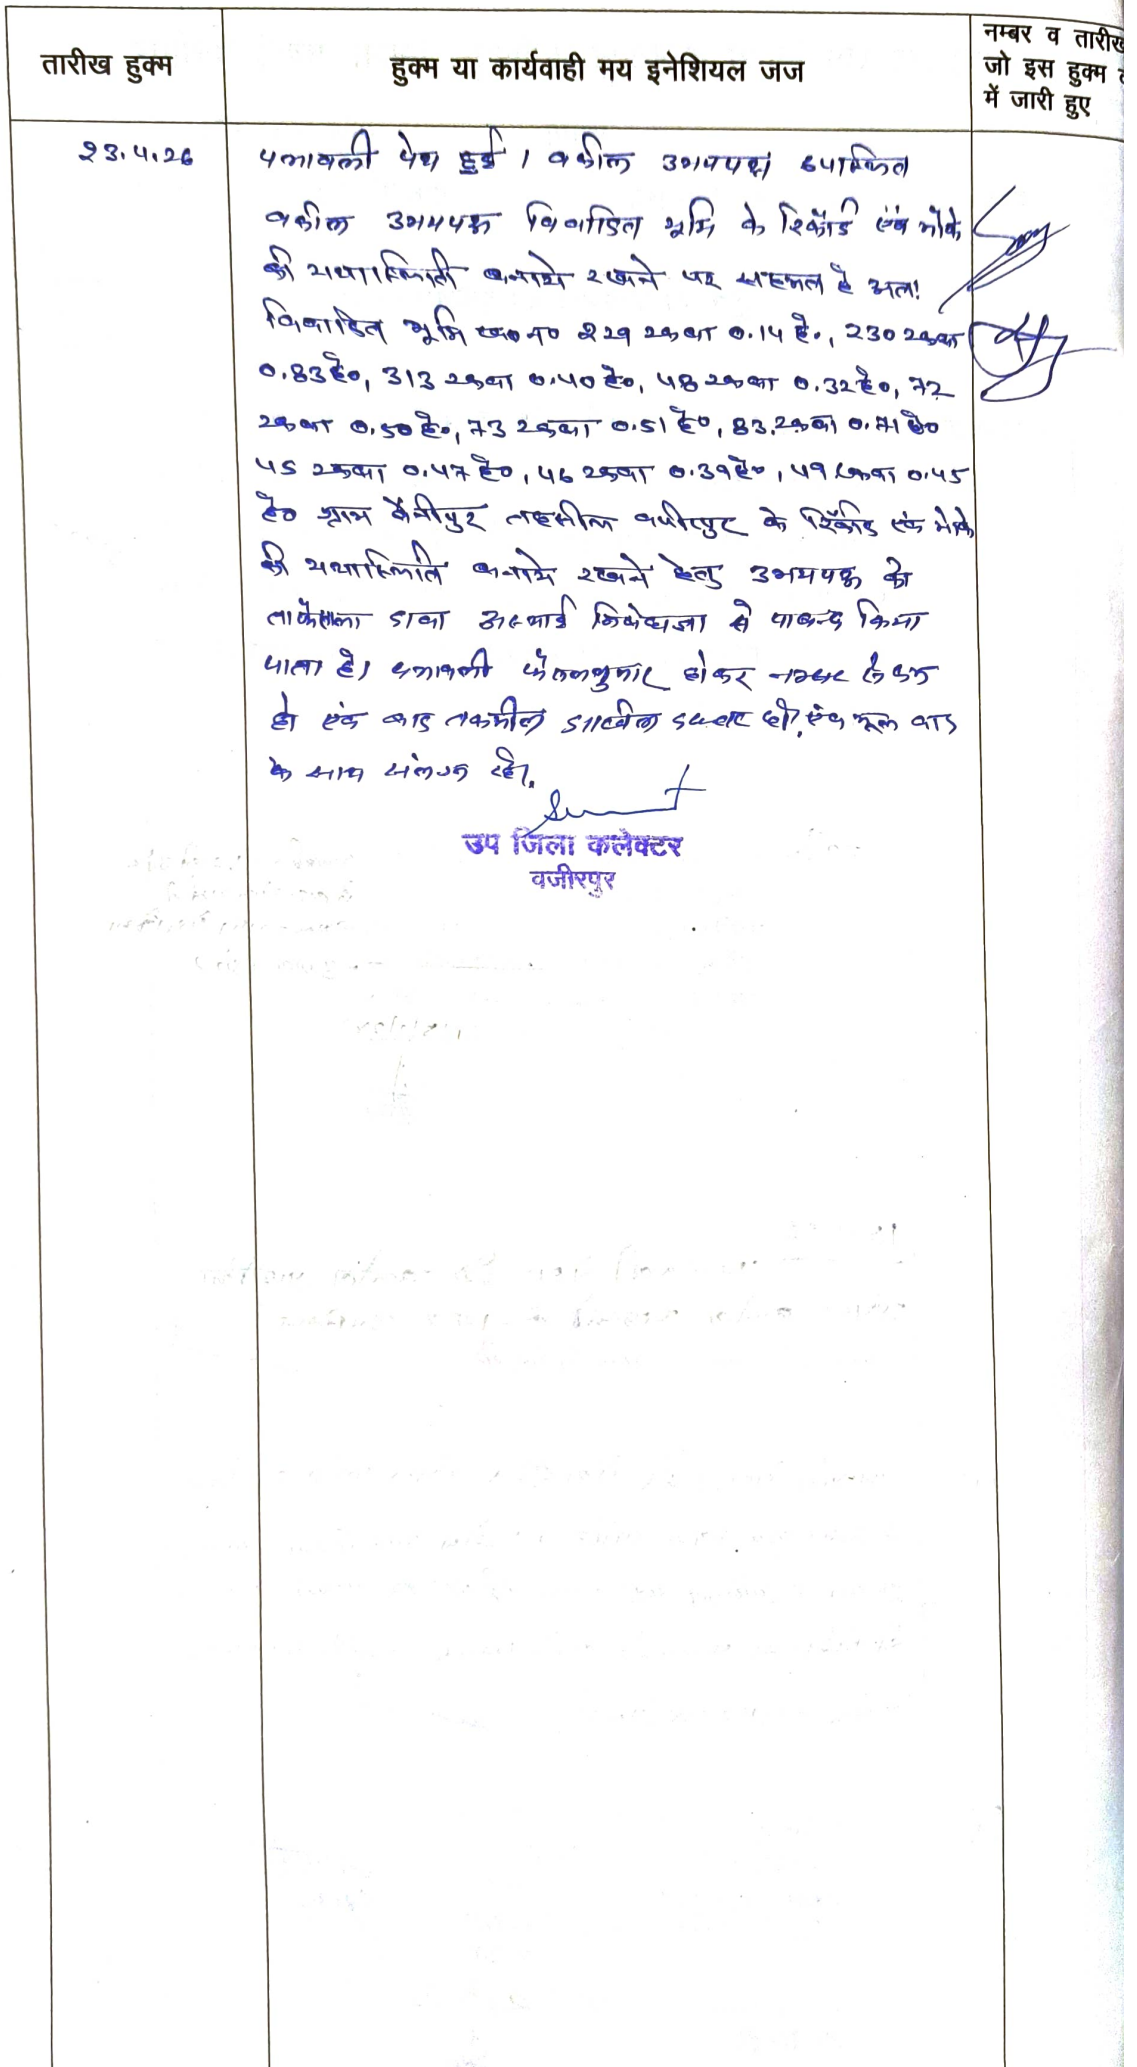 तारीख हुक्म
हुक्म या कार्यवाही मय इनेशियल जज
नम्बर व तारीख
जो इस हुक्म
में जारी हुए
23.4.26
पत्रावली पेश हुई । वकील उभयपक्ष उपस्थित
वकील उभयपक्ष विवादित भूमि के रिकॉर्ड एंव मौके
की यथास्थिती बनाये रखने पर सहमत है अतः
विवादित भूमि ख०न० 229 रकबा 0.14 है०, 230 रकबा
0.83 है०, 313 रकबा 0.40 है०, 48 रकबा 0.32 है०, 72
रकबा 0.50 है०, 73 रकबा 0.51 है०, 83 रकबा 0.71 है०
45 रकबा 0.47 है०, 46 रकबा 0.39 है०, 49 रकबा 0.45
है० ग्राम तहसील वजीरपुर के रिकॉर्ड एंव मौके
की यथास्थिति बनाये रखने हेतु उभयपक्ष को
ताफैसला दावा अस्थाई निषेधाज्ञा से पाबन्द किया
जाता है। पत्रावली फैसलशुमार होकर नम्बर से कम
हो एंव बाद तकमील दाखिल दफ्तर हो, एंव मूल वाद
के साथ संलग्न रहे।
उप जिला कलेक्टर
वजीरपुर